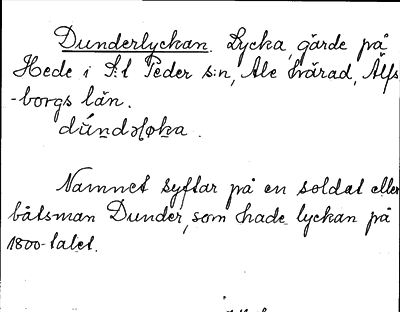 Dunderlyckan. Lycka, gärde på
Hede i S:t Peder s:n, Ale härad, Älfs
-borgs län.
Namnet syftar på en soldat eller
båtsman Dunder, som hade lyckan på
1800-talet.